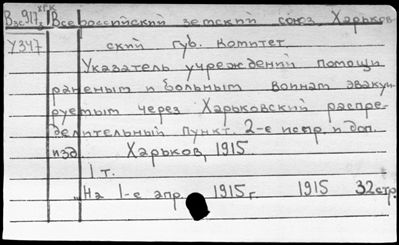 Вхс917 ХГК Всероссийский земский союз. Харьков
У347 ский губ. комитет
Указатель учреждений помощи
раненым и больным воинам эваку
руемым через Харьковский распре-
делительный пункт. 2-е испр. и доп.
изд. Харьков, 1915
1 т.
На 1-е апр. 1915 г. 1915 32 стр.